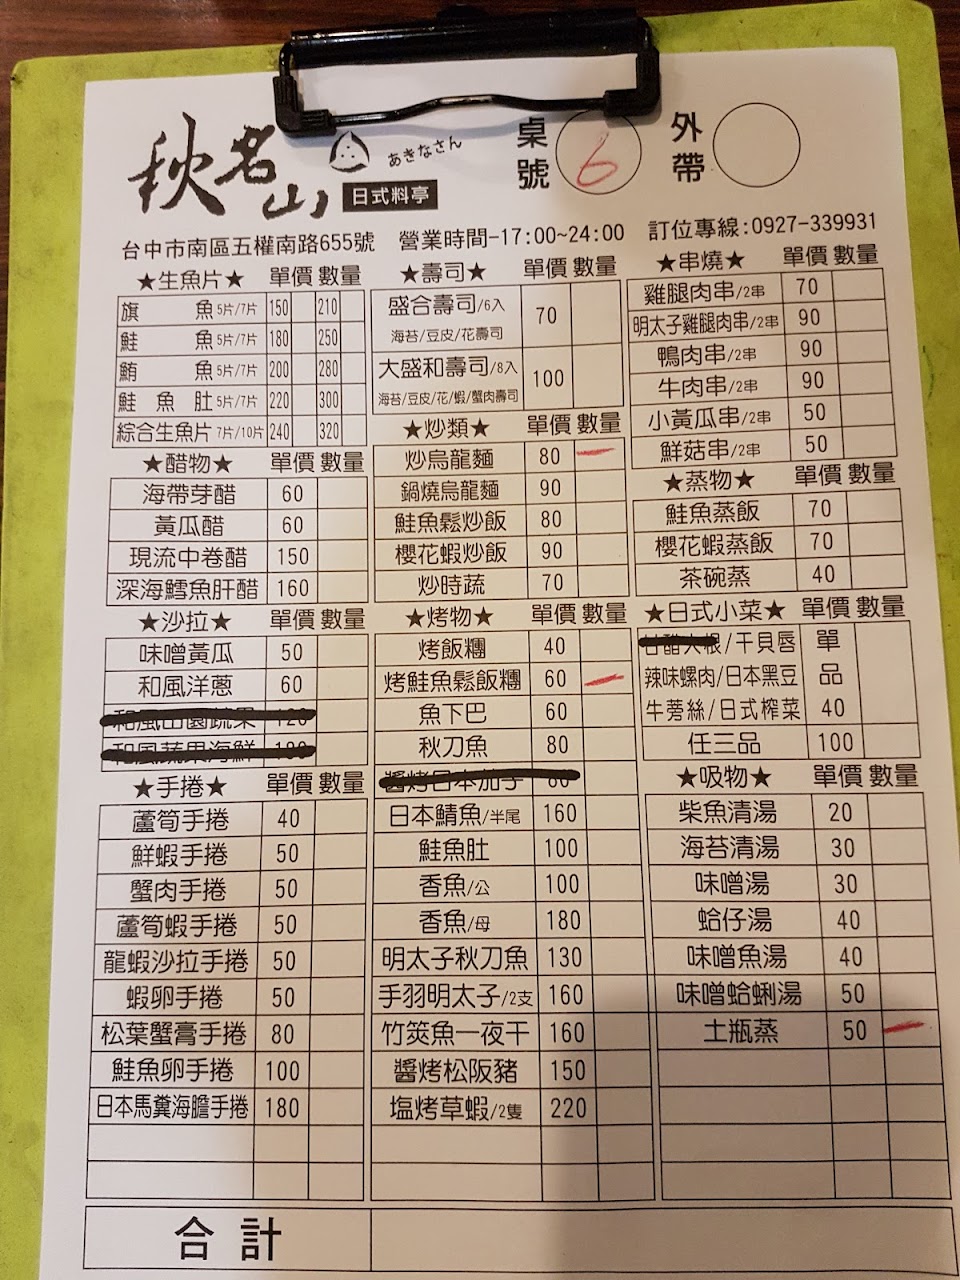 秋名山 あきなさん 日式料亭 桌號 6 外帶
台中市南區五權南路655號 營業時間-17:00~24:00 訂位專線:0927-339931
★生魚片★ 單價 數量
旗魚 5片/7片 150 210
鮭魚 5片/7片 180 250
鮪魚 5片/7片 200 280
鮭魚肚 5片/7片 220 300
綜合生魚片 7片/10片 240 320
★醋物★ 單價 數量
海帶芽醋 60
黃瓜醋 60
現流中卷醋 150
深海鱈魚肝醋 160
★沙拉★ 單價 數量
味噌黃瓜 50
和風洋蔥 60
和風田園蔬果 120
和風蔬果海鮮
★手捲★ 單價 數量
蘆筍手捲 40
鮮蝦手捲 50
蟹肉手捲 50
蘆筍蝦手捲 50
龍蝦沙拉手捲 50
蝦卵手捲 50
松葉蟹膏手捲 80
鮭魚卵手捲 100
日本馬糞海膽手捲 180
★壽司★ 單價 數量
盛合壽司/6入 70
海苔/豆皮/花壽司
大盛和壽司/8入 100
海苔/豆皮/花/蝦/蟹肉壽司
★炒類★ 單價 數量
炒烏龍麵 80
鍋燒烏龍麵 90
鮭魚鬆炒飯 80
櫻花蝦炒飯 90
炒時蔬 70
★烤物★ 單價 數量
烤飯糰 40
烤鮭魚鬆飯糰 60
魚下巴 60
秋刀魚 80
醬烤日本茄子 80
日本鯖魚/半尾 160
鮭魚肚 100
香魚/公 100
香魚/母 180
明太子秋刀魚 130
手羽明太子/2支 160
竹筴魚一夜干 160
醬烤松阪豬 150
塩烤草蝦/2隻 220
★串燒★ 單價 數量
雞腿肉串/2串 70
明太子雞腿肉串/2串 90
鴨肉串/2串 90
牛肉串/2串 90
小黃瓜串/2串 50
鮮菇串/2串 50
★蒸物★ 單價 數量
鮭魚蒸飯 70
櫻花蝦蒸飯 70
茶碗蒸 40
★日式小菜★ 單價 數量
甘醋大根/干貝唇 單
辣味螺肉/日本黑豆 品
牛蒡絲/日式榨菜 40
任三品 100
★吸物★ 單價 數量
柴魚清湯 20
海苔清湯 30
味噌湯 30
蛤仔湯 40
味噌魚湯 40
味噌蛤蜊湯 50
土瓶蒸 50
合計